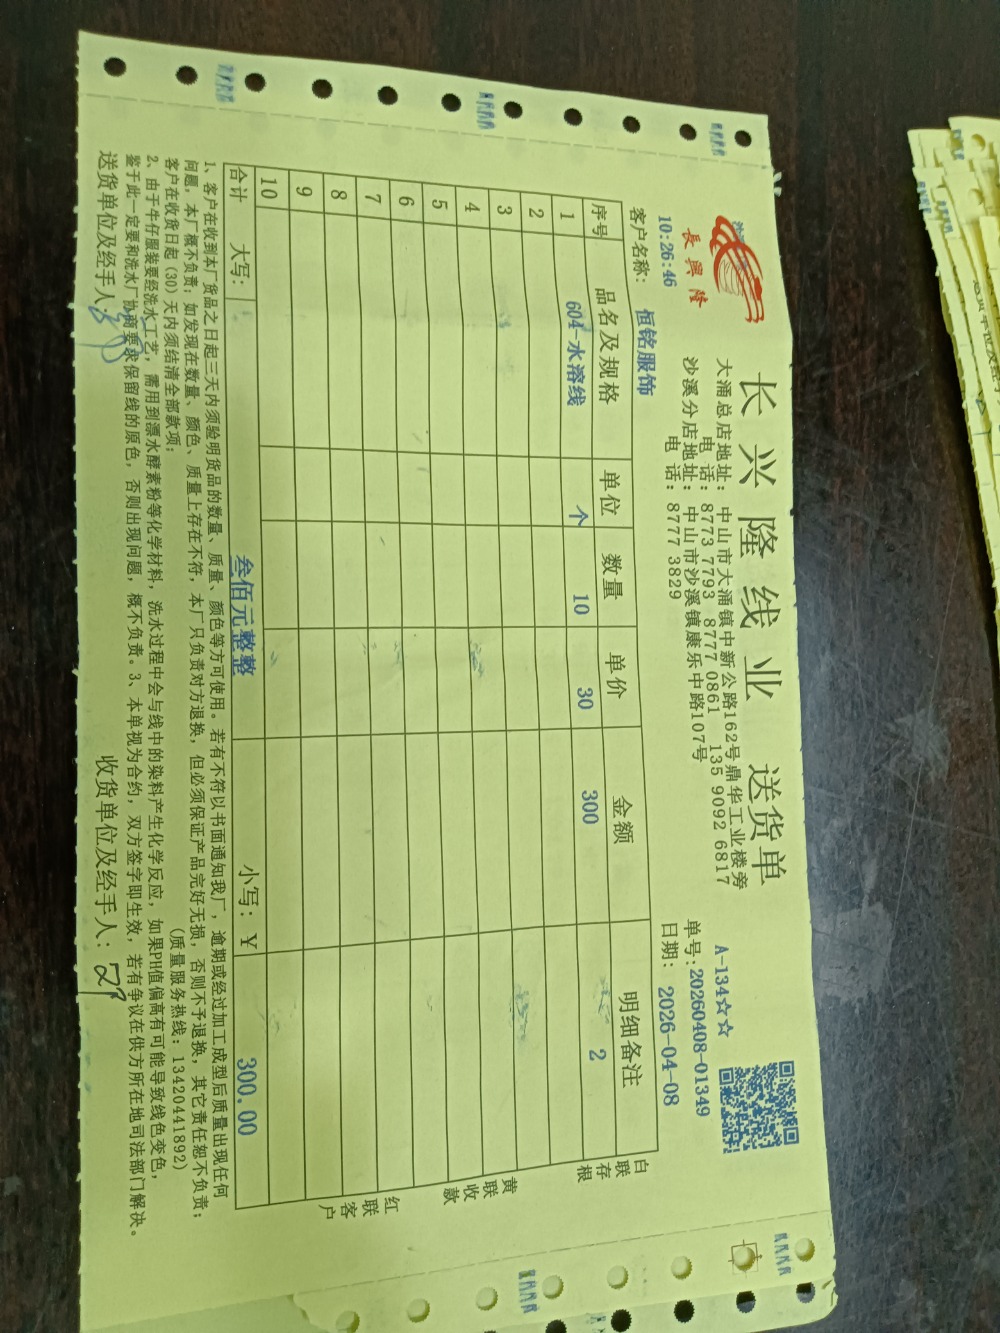 長興隆
长兴隆线业 送货单
大涌总店地址: 中山市大涌镇中新公路162号鼎华工业楼旁
电 话: 8773 7793 8777 0861 135 9092 6817
沙溪分店地址: 中山市沙溪镇康乐中路107号
电 话: 8777 3829
A-134☆☆
单号:20260408-01349
日期: 2026-04-08
10:26:46
客户名称: 恒铭服饰
序号 品名及规格 单位 数量 单价 金额 明细备注
1 604-水溶线 个 10 30 300 2
2
3
4
5
6
7
8
9
10
合计 大写: 叁佰元整整 小写: ¥ 300.00
白联存根
黄联收款
红联客户
1、客户在收到本厂货品之日起三天内须验明货品的数量、质量、颜色等方可使用。若有不符以书面通知我厂，逾期或经过加工成型后质量出现任何
问题，本厂概不负责；如发现在数量、颜色、质量上存在不符，本厂只负责对方退换，但必须保证产品完好无损，否则不予退换，其它责任恕不负责；
客户在收货日起(30)天内须结清全部款项； (质量服务热线: 13420441892)
2、由于牛仔服装要经洗水工艺，需用到漂水酵素粉等化学材料，洗水过程中会与线中的染料产生化学反应，如果PH值偏高有可能导致线色变色，
鉴于此一定要和洗水厂协商要求保留线的原色，否则出现问题，概不负责。3、本单视为合约，双方签字即生效，若有争议在供方所在地司法部门解决。
送货单位及经手人: 收货单位及经手人: